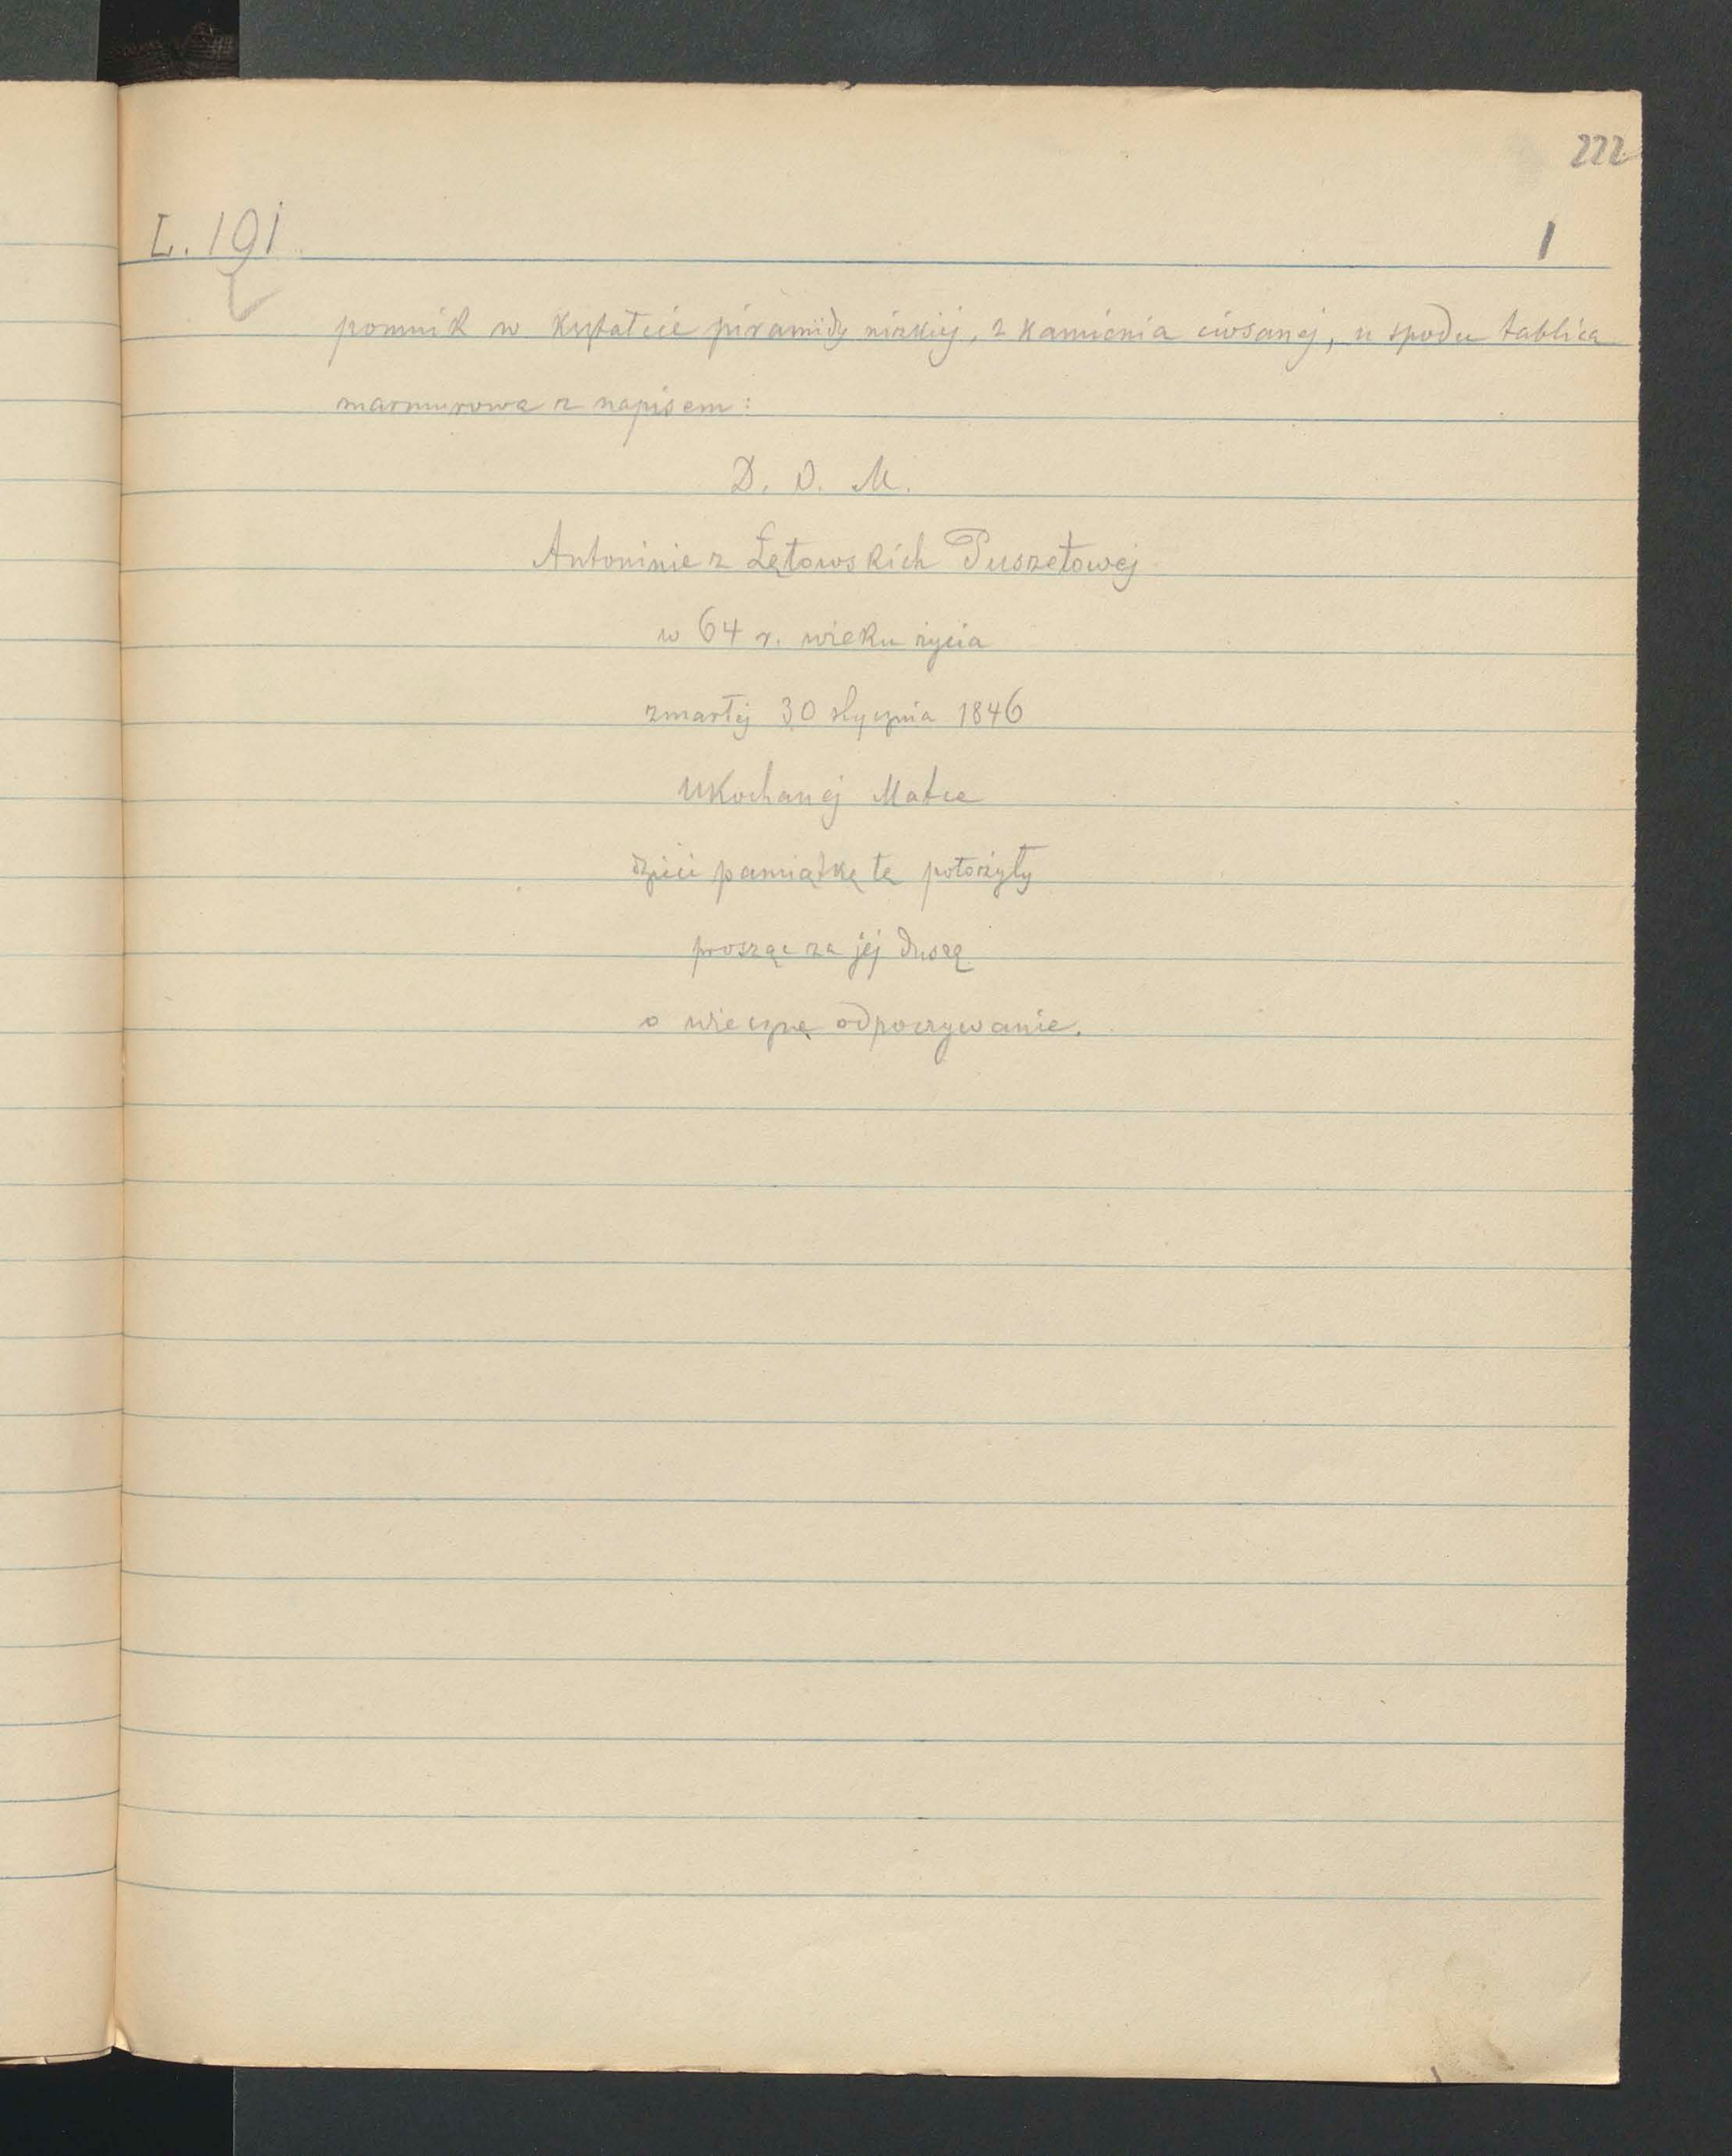 222
L. 191
1
pomnik w kształcie piramidy nizkiej, z kamienia ciosanej, u spodu tablica
marmurowa z napisem:
D. O. M.
Antoninie z Łętowskich Puszetowej
w 64 r. wieku życia
zmarłej 30 stycznia 1846
Ukochanej Matce
dzieci pamiątkę tę położyły
prosząc za jej duszę
o wieczne odpoczywanie.